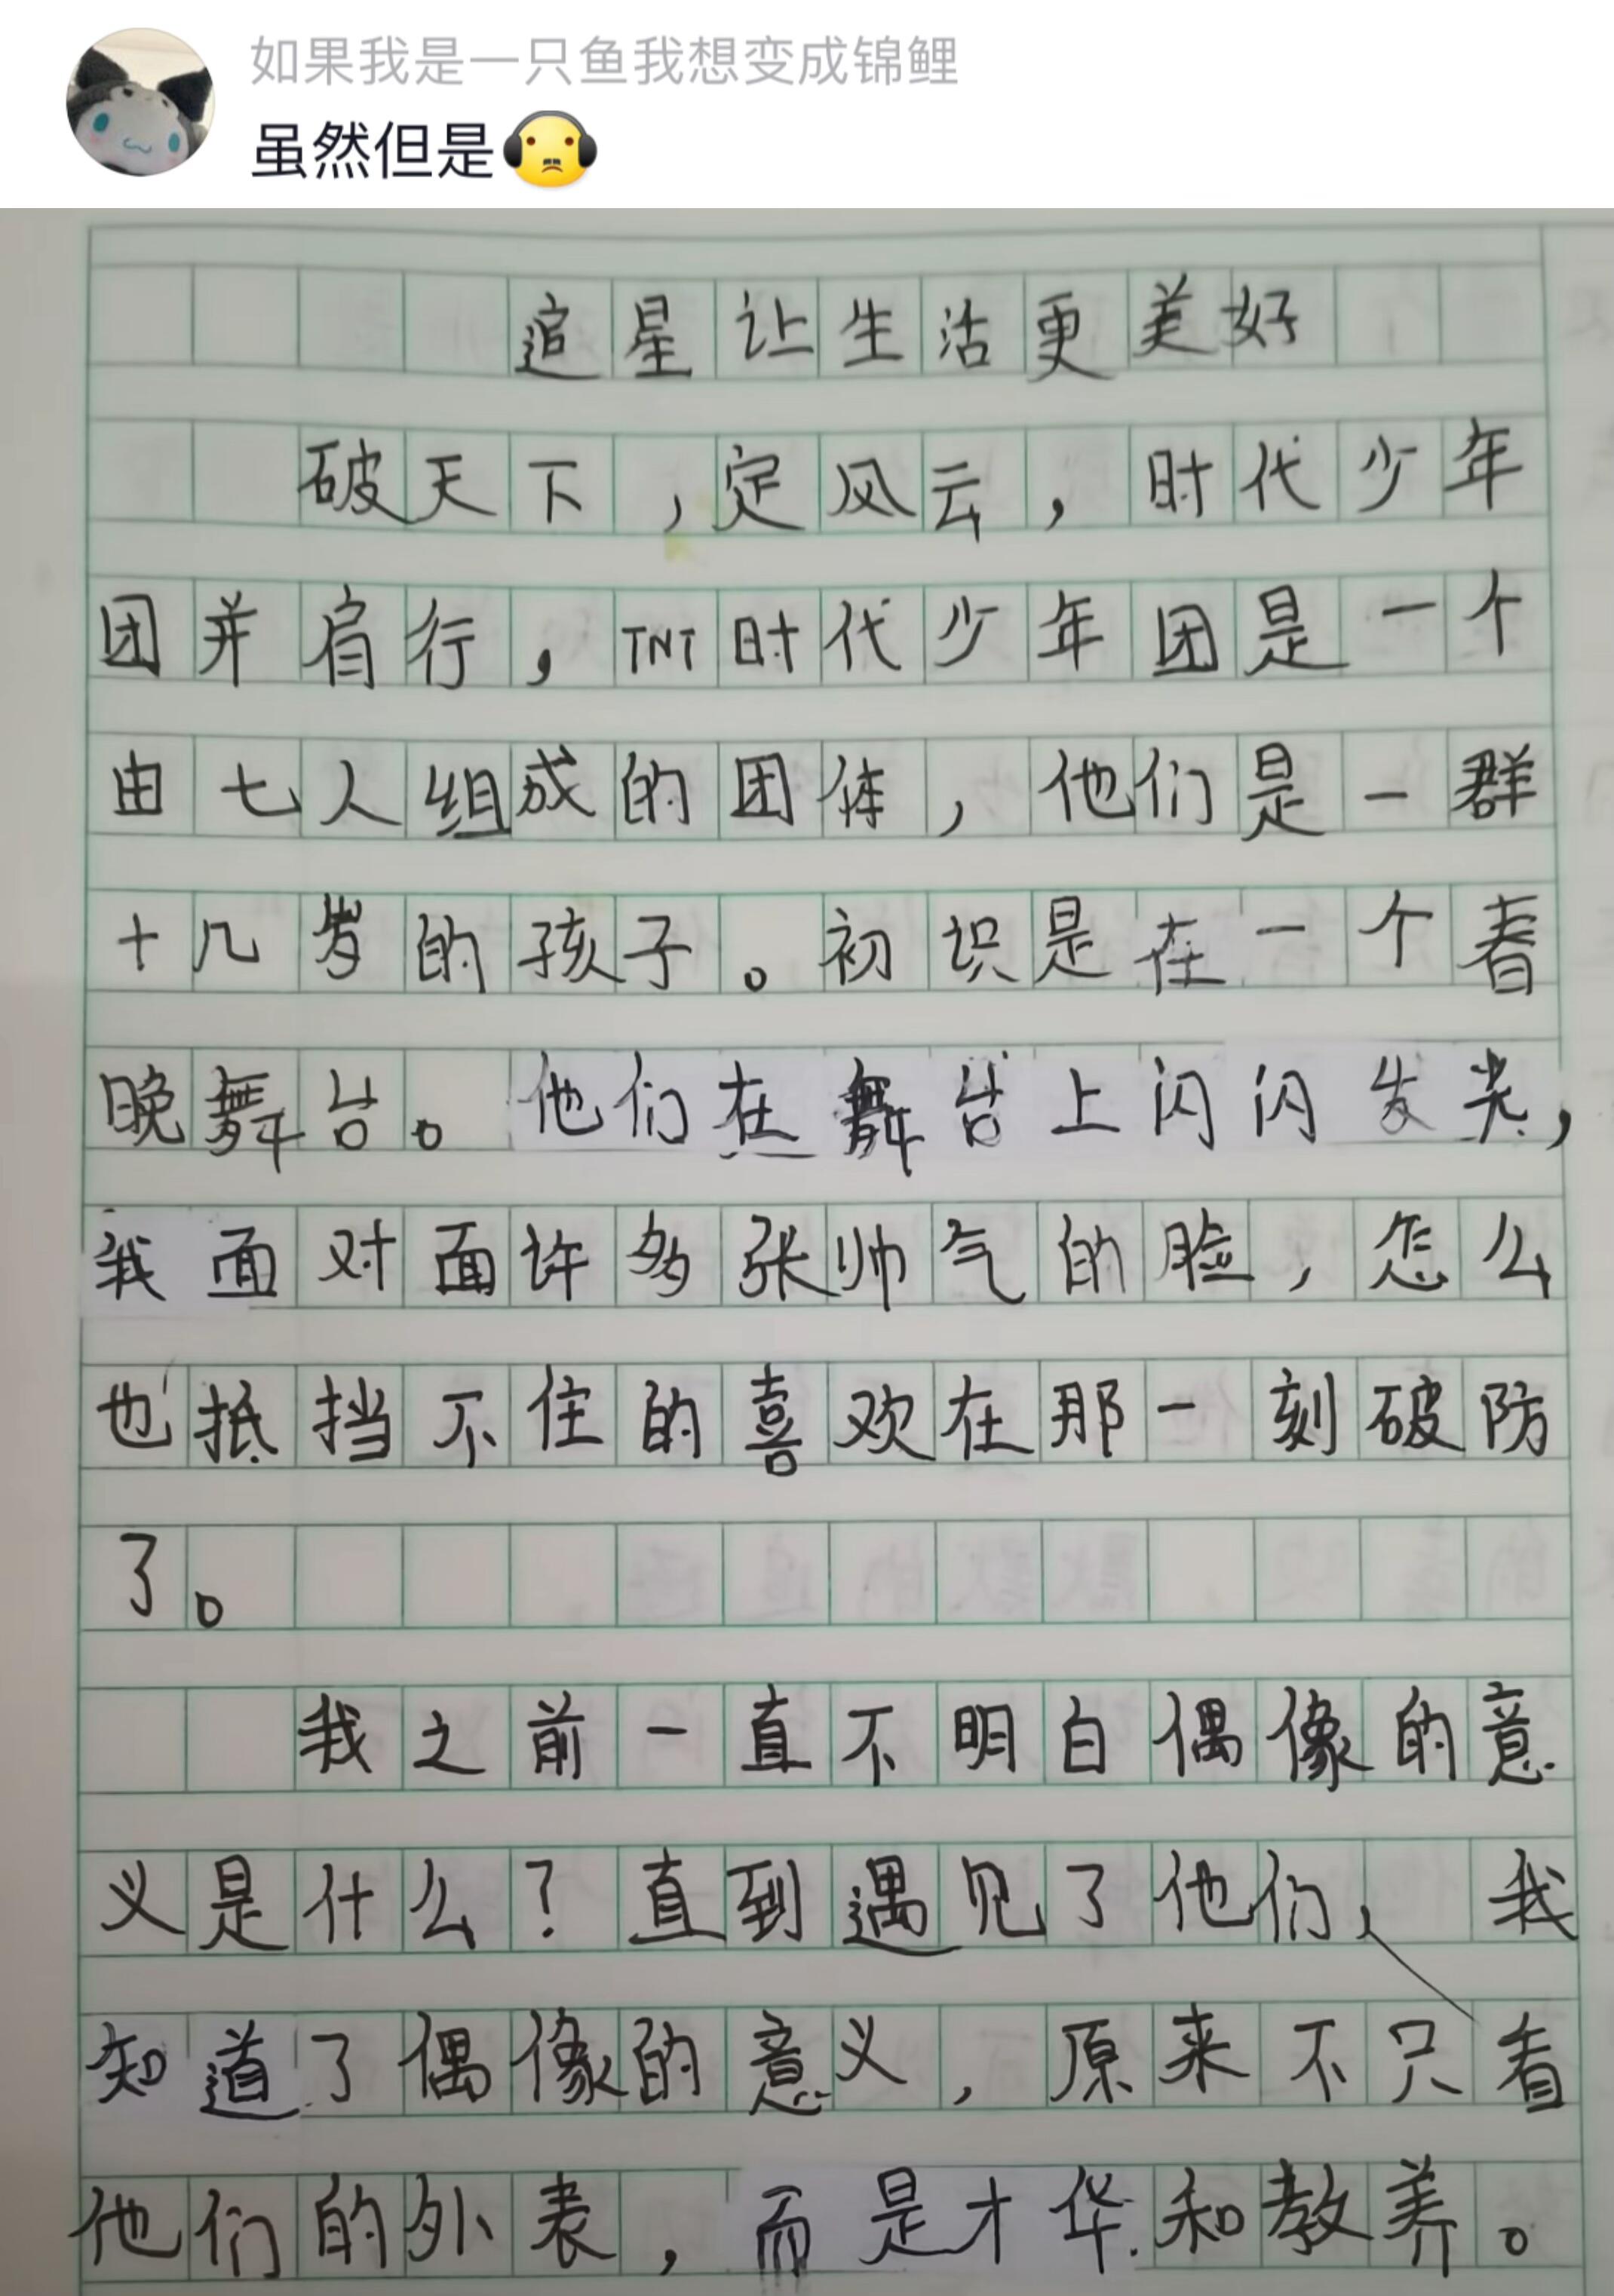 如果我是一只鱼我想变成锦鲤
虽然但是
追星让生活更美好
破天下,定风云,时代少年
团并肩行,TNT时代少年团是一个
由七人组成的团体,他们是一群
十几岁的孩子。初识是在一个春
晚舞台。他们在舞台上闪闪发光,
我面对面许多张帅气的脸,怎么
也抵挡不住的喜欢在那一刻破防
了。
我之前一直不明白偶像的意
义是什么?直到遇见了他们,我
知道了偶像的意义,原来不只看
他们的外表,而是才华和教养。